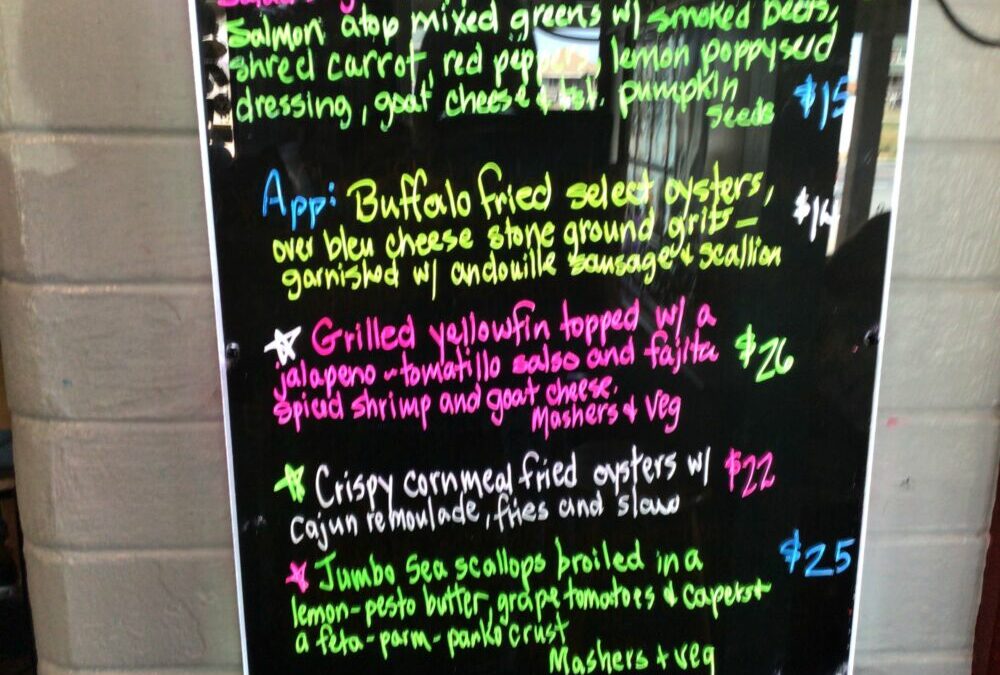 Salmon atop mixed greens w/ smoked beets,
shred carrot, red pepper, lemon poppysud
dressing, goat cheese & tst. pumpkin
seeds $15
App: Buffalo fried select oysters,
over bleu cheese stone ground grits - $14
garnished w/ andouille sausage + scallion
☆ Grilled yellowfin topped w/ a
jalapeno-tomatillo salsa and fajita $26
spiced shrimp and goat cheese.
Mashers + veg
☆ Crispy cornmeal fried oysters w/ $22
cajun remoulade, fries and slaw
☆ Jumbo Sea scallops broiled in a $25
lemon-pesto butter, grape tomatoes & capers +
a feta-parm-panko crust
Mashers + veg